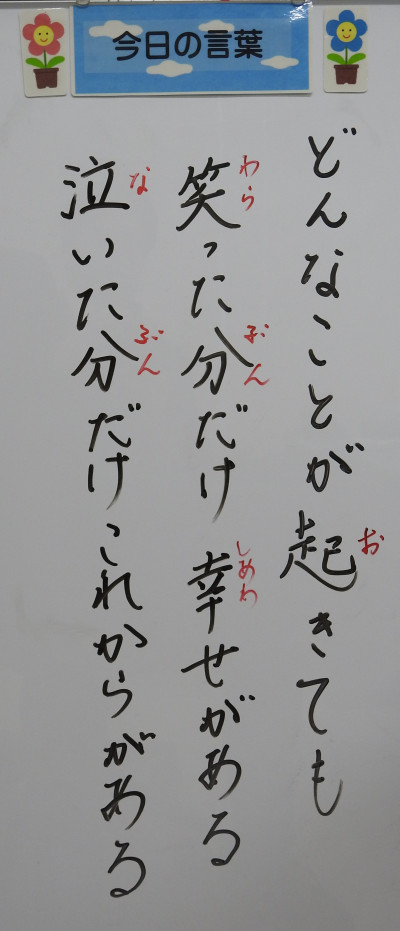 今日の言葉
どんなことが起きても
お
笑った分だけ 幸せがある
わら
ぶん
しあわ
泣いた分だけこれからがある
な
ぶん